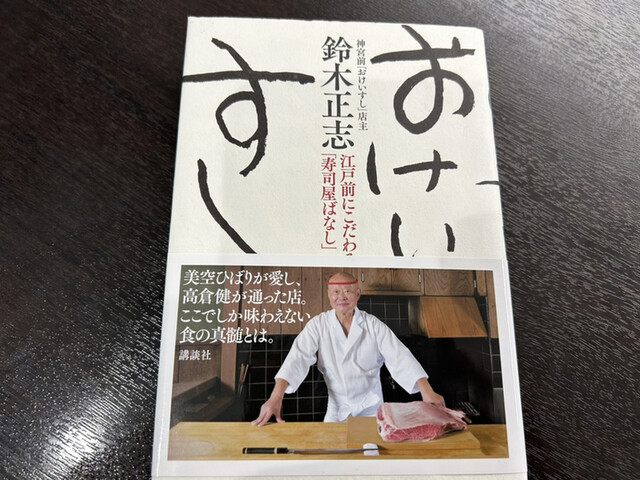 おけい
すし
神宮前「おけいすし」店主
鈴木正志
江戸前にこだわる
「寿司屋ばなし」
美空ひばりが愛し、
高倉健が通った店。
ここでしか味わえない
食の真髄とは。
講談社